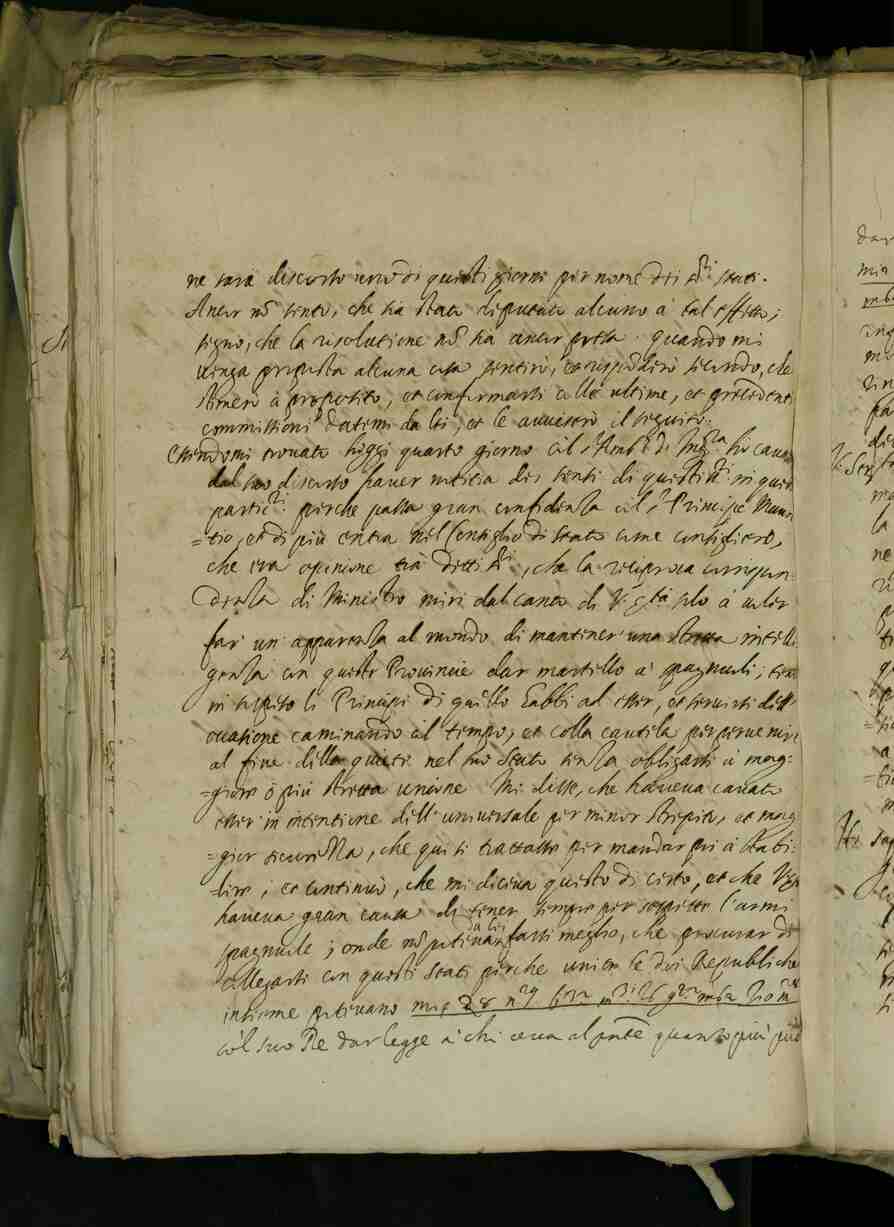 ne sarà discorso uno di questi giorni per nome dei ss.ri stati.
Ancor nõ sento, che sia stato deputato alcuno à tal effetto;
segno, che la risolutione nõ sia ancor presa. quando mi
venga proposta alcuna cosa sentirò, et rispõderò secondo, che
stimerò à proposito, et conformarsi alle ultime, et precedenti
commissioni datemi da lei, et le aviserò il seguito.
Essendomi trovato hoggi quarto giorno col s.r Amb.r di Ing.ra hò cavato
dal suo discorso haver notitia dei sensi di questi SS.ri in questo
partic.re perche passa gran confidenza col s.r Principe Mauri
=tio, et di più entra nel Conseglio di stato come consigliero,
che era opinione trà detti SS.ri, che la reciproca corrispon=
denza di Ministro miri dal canto di V. S.tà solo à voler
far un' apparenza al mondo di mantener una stretta intelli
genza con queste Provincie dar martello a' spagnuoli; tener
in sospetto li Principi di
caminando col tempo, et colla cautela per pervenire
al fine della quiete nel suo stato senza obligarsi à mag=
=giore ò più stretta unione Mi disse, che haveva cavato
esser in intentione dell' universale per minor strepito, et mag
=gior sicurezza, che qui si trattasse per mandar poi à stabi=
=lire; et continuò, che mi diceva questo di certo, et che
haveva gran causa di tener sempre per sospette l'armi
spagnuole; onde nõ potevan farsi meglio, che procurar di
collegarsi con questi stati perche unien le due Republiche
insieme potevano
col suo Re dar legge à chi cerca al pnte quanto più può